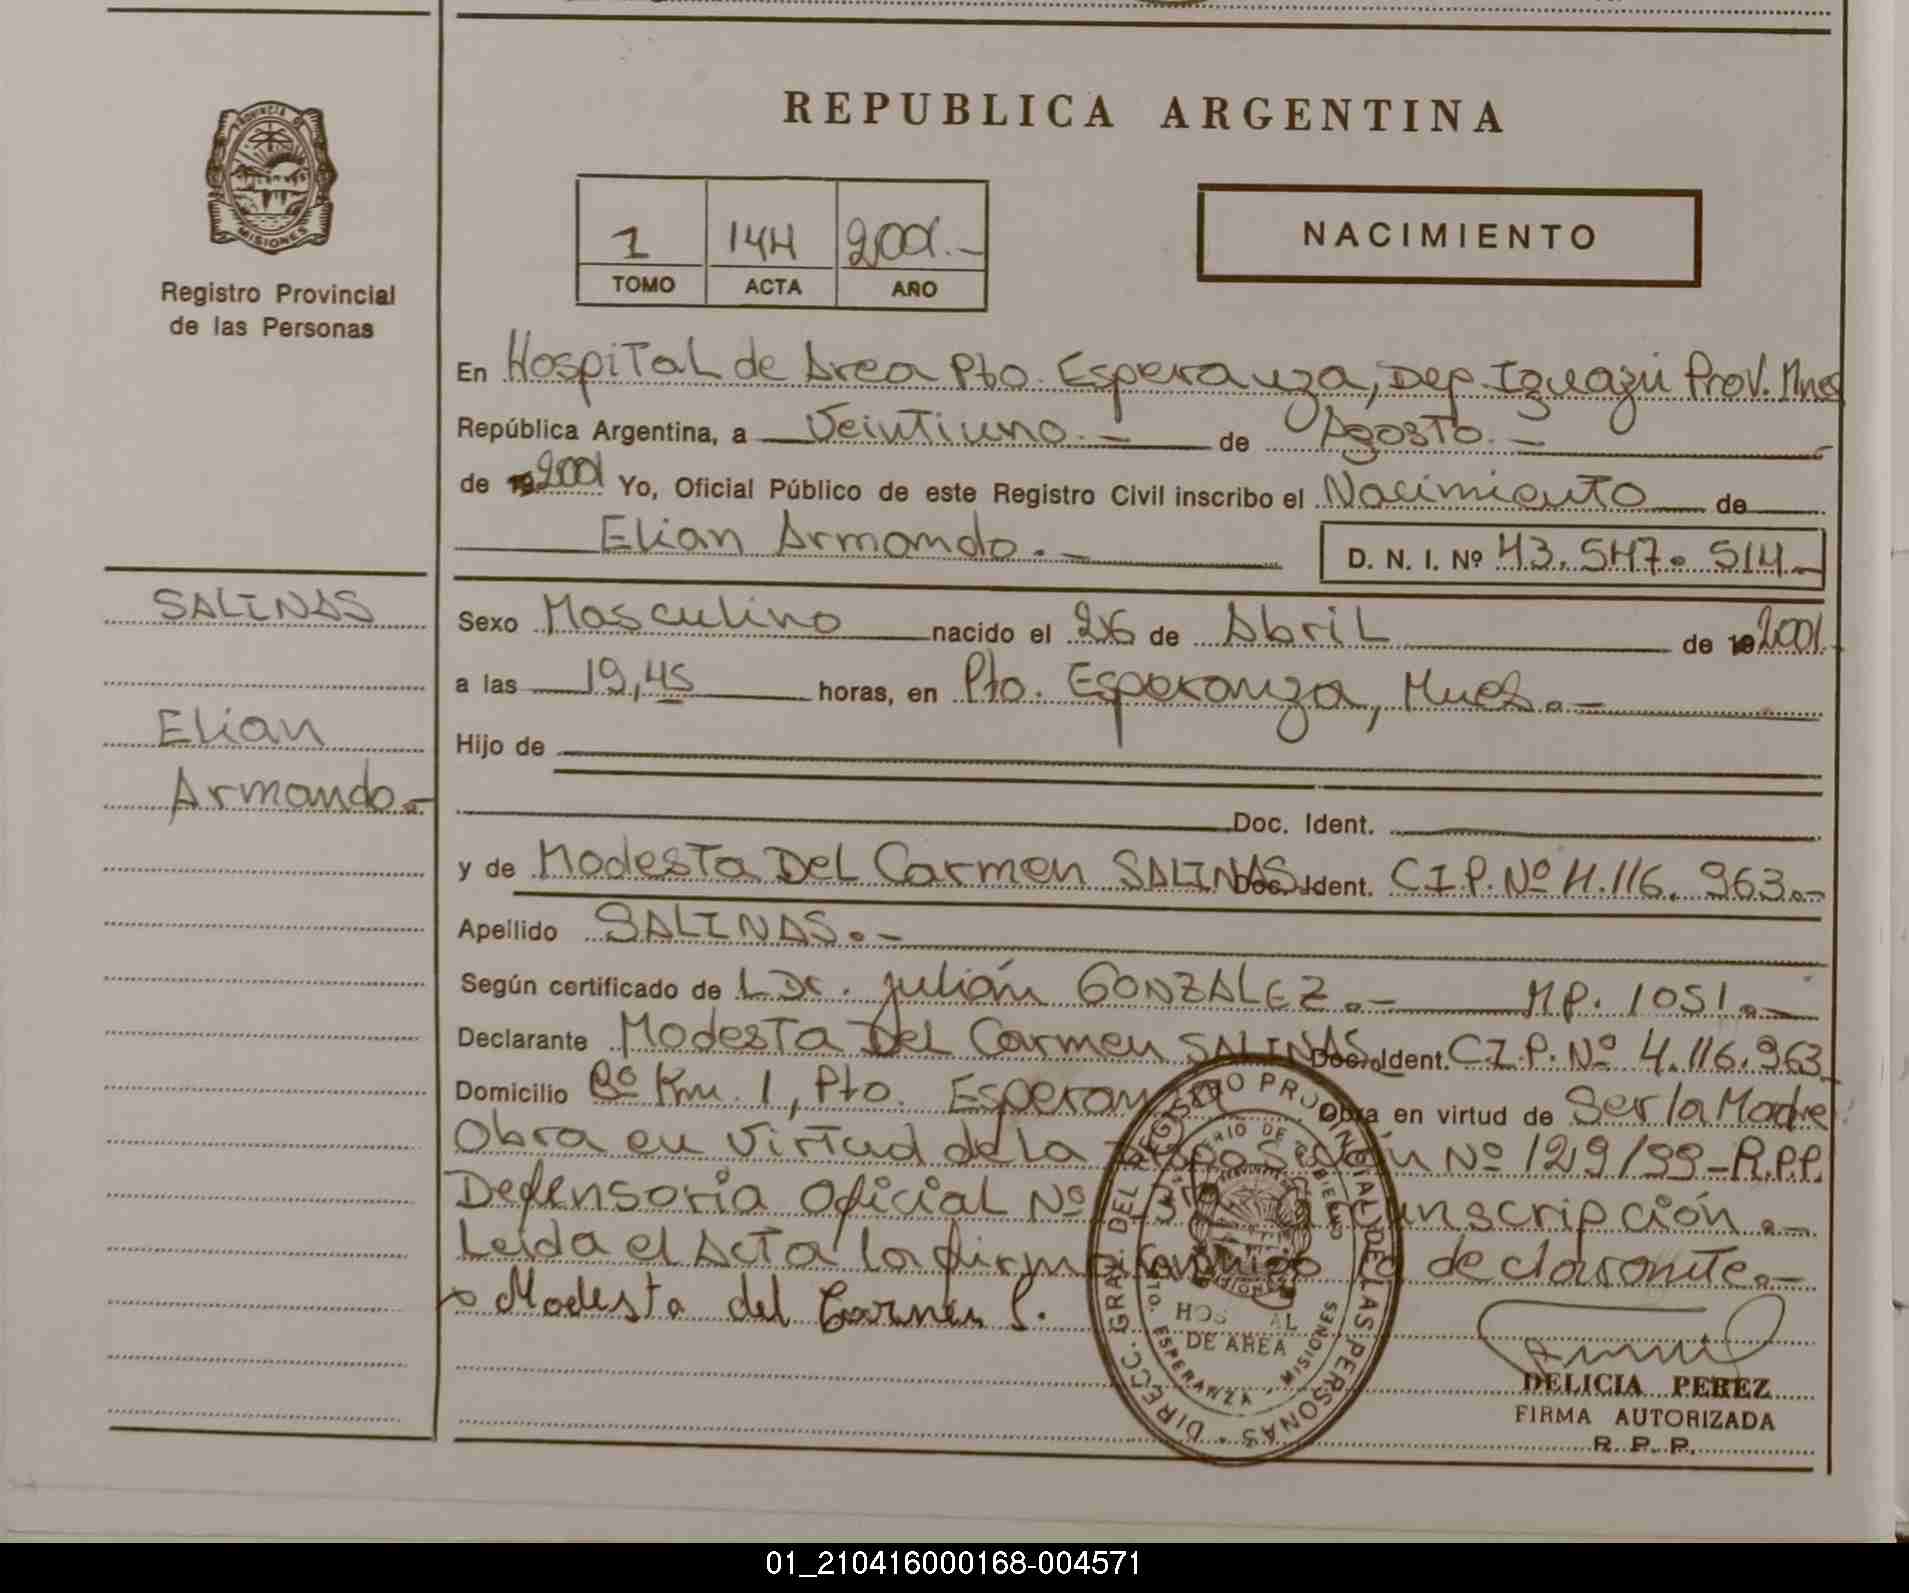 REPUBLICA ARGENTINA
PROVINCIA D
MISIONES
Registro Provincial
de las Personas
1 144 2001.-
TOMO ACTA AÑO
NACIMIENTO
En Hospital de Area Pto. Esperanza, Dep. Iguazú Prov. Mnes
República Argentina, a Veintiuno.- de Agosto.-
de 192001 Yo, Oficial Público de este Registro Civil inscribo el Nacimiento de
Elian Armando.- D. N. I. Nº 43.547.514-
SALINAS
Elian
Armando.-
Sexo Masculino nacido el 26 de Abril de 192001.-
a las 19,45 horas, en Pto. Esperanza, Mnes.-
Hijo de
Doc. Ident.
y de Modesta Del Carmen SALINAS Doc. Ident. C.I.P. Nº 4.116.963.-
Apellido SALINAS.-
Según certificado de L Dr. Julián GONZALEZ.- M.P. 1051.-
Declarante Modesta Del Carmen SALINAS Doc. Ident. C.I.P. Nº 4.116.963
Domicilio Bº Km. 1, Pto. Obra en virtud de Ser la Madre
Obra en Virtud de la Nº 129/99-R.P.P.
Defensoria Oficial Nº
Leida el Acta la firma la declarante.-
Modesta del Carmen S.
DIRECC. GRAL. DEL REGISTRO PROVINCIAL DE LAS PERSONAS
DE AREA
PTO. ESPERANZA - MISIONES
DELICIA PEREZ
FIRMA AUTORIZADA
R. P. P.
01_210416000168-004571